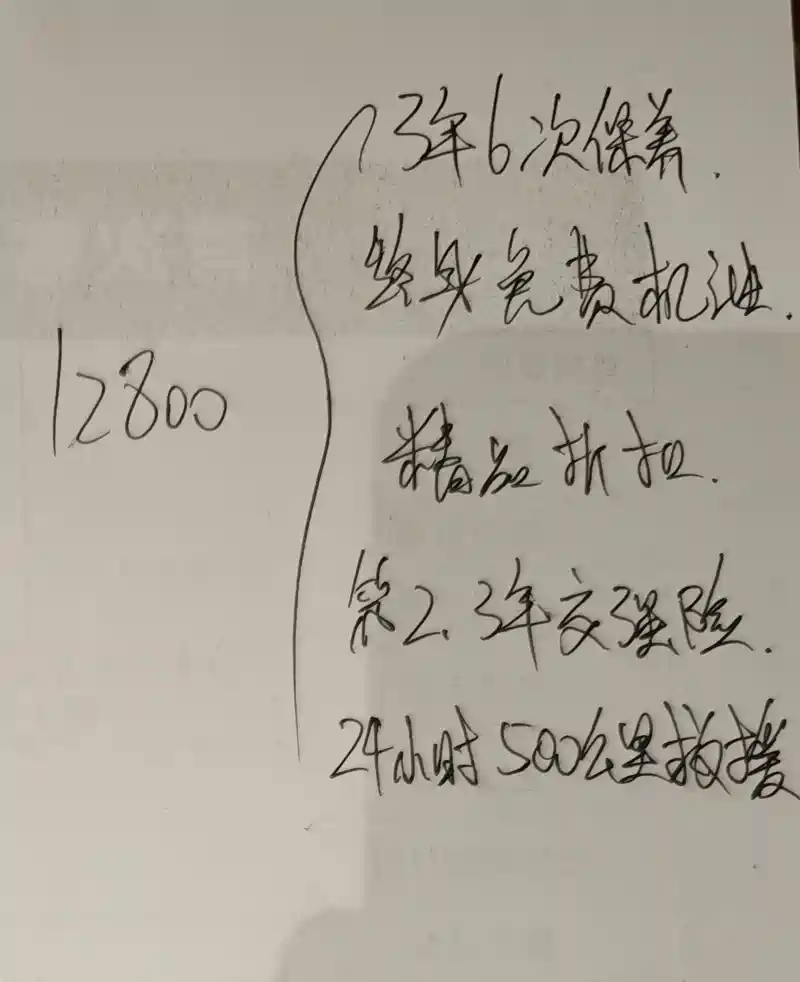 12800
3年6次保养.
终身免费机油.
精品折扣.
第2.3年交强险.
24小时500公里救援